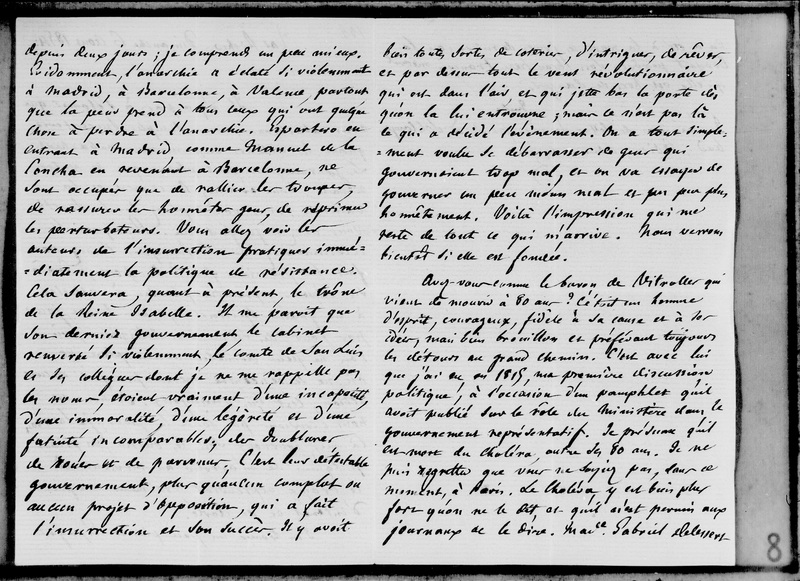 depuis deux jours ; je comprends un peu mieux.
Evidemment, l'anarchie a éclaté si violemment
à Madrid, à Barcelonne, à Valence, partout
que la peur prend à tous ceux qui ont quelque
chose à perdre à l'anarchie. Espartero en
entrant à Madrid comme Manuel de la
Concha en revenant à Barcelonne, ne
sont occupés que de rallier les troupes,
de rassurer les honnêtes gens, de réprimer
les perturbateurs. Vous allez voir les
auteurs de l'insurrection pratiquer immé=
=diatement la politique de résistance.
Cela sauvera, quant à présent, le trône
de la Reine Isabelle. Il me paroit que
son dernier gouvernement le cabinet
renversé si violemment, le comte de San Luis
et ses collègues dont je ne me rappelle pas
les noms, étoient vraiment d'une incapacité,
d'une immoralité, d'une légèreté et d'une
fatuité incomparables ; des doublures
de roués et de parvenus. C'est leur détestable
gouvernement, plus qu'aucun complot ou
aucun projet d'opposition, qui a fait
l'insurrection et son succès. Il y avoit
bien toutes sortes de coteries, d'intrigues, de rêves,
et par dessus tout le vent révolutionnaire
qui est dans l'air et qui jette bas la porte dès
qu'on la lui entrouvre ; mais ce n'est pas là
ce qui a décidé l'évènement. On a tout simple=
=ment voulu se débarrasser de gens qui
gouvernoient trop mal, et on va essayer de
gouverner un peu moins mal et un peu plus
honnêtement. Voilà l'impression qui me
reste de tout ce qui m'arrive. Nous verrons
bientôt si elle est fondée.
Avez-vous connu le baron de Vitrolles qui
vient de mourir à 80 ans ? C'étoit un homme
d'esprit, courageux, fidèle à sa cause et à ses
idées, mais bien brouillon et préférant toujours
les détours au grand chemin. C'est avec lui
que j'ai eu en 1815, ma première discussion
politique, à l'occasion d'un pamphlet qu'il
avoit publié sur le rôle du Ministère dans le
gouvernement représentatif. Je présume qu'il
est mort du choléra, outre ses 80 ans. Je ne
puis regretter que vous ne soyez pas, dans ce
moment, à Paris. Le choléra y est bien plus
fort qu'on ne le dit et qu'il n'est permis aux
journaux de le dire. Mad.e Gabriel Delessert
8